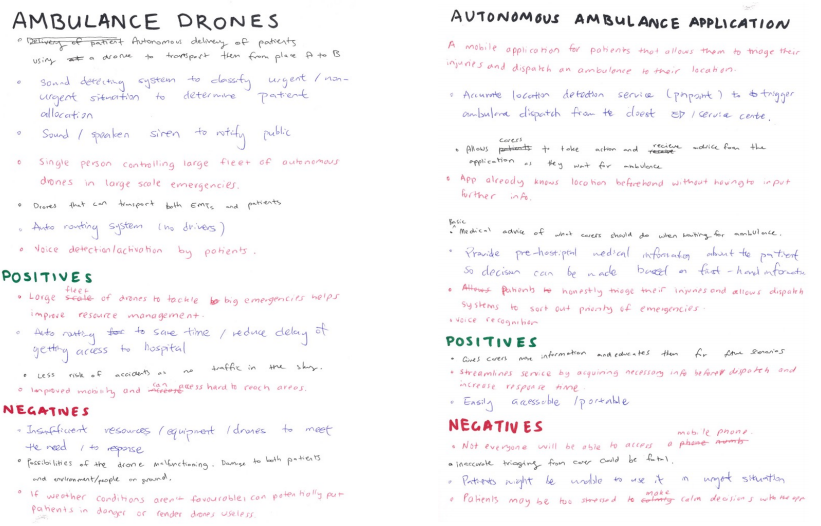 AMBULANCE DRONES
• Delivery of patient Autonomous delivery of patients
using a drone to transport them from place A to B
• Sound detecting system to classify urgent / non-
urgent situation to determine patient
allocation
• Sound / speaker siren to notify public
• Single person controlling large fleet of autonomous
drones in large scale emergencies.
• Drones that can transport both EMTs and patients
• Auto routing system (no drivers)
• Voice detection/activation by patients.
POSITIVES
• Large fleet of drones to tackle big emergencies helps
improve resource management.
• Auto routing to save time / reduce delay of
getting access to hospital
• Less risk of accidents as no traffic in the sky.
• Improved mobility and can access hard to reach areas.
NEGATIVES
• Insufficient resources / equipment / drones to meet
the need / to response
• Possibilities of the drone malfunctioning. Damage to both patients
and environment/people on ground.
• If weather conditions aren't favourable can potentially put
patients in danger or render drones useless.
AUTONOMOUS AMBULANCE APPLICATION
A mobile application for patients that allows them to triage their
injuries and dispatch an ambulance to their location.
• Accurate location detection service (pinpoint) to trigger
ambulance dispatch from the closest ED / service centre.
• Allows carers patients to take action and recieve advice from the
application as they wait for ambulance
• App already knows location beforehand without having to input
further info.
• Basic Medical advice of what carers should do when waiting for ambulance.
• Provide pre-hospital medical information about the patient
so decision can be made based on first-hand informatio
• Allows Patients to honestly triage their injuries and allows dispatch
systems to sort out priority of emergencies.
• Voice recognition
POSITIVES
• Gives carers more information and educates them for future scenarios
• Streamlines service by acquiring necessary info before dispatch and
increase response time.
• Easily accessible / portable
NEGATIVES
• Not everyone will be able to access a mobile phone.
• Inaccurate triaging from carer could be fatal.
• Patients might be unable to use it in urgent situation
• Patients may be too stressed to make calm decisions with the app